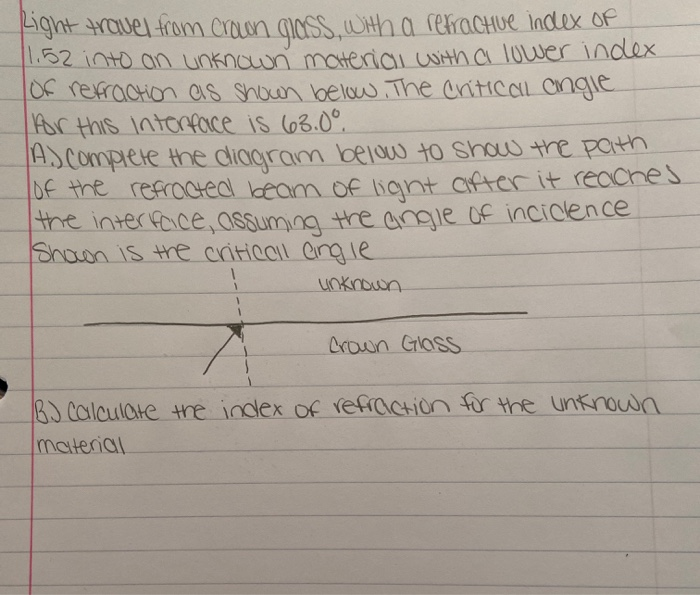 Light travel from crown glass, with a refractive index of
1.52 into an unknown material with a lower index
of refraction as shown below. The critical angle
for this interface is 63.0°.
A) complete the diagram below to show the path
of the refracted beam of light after it reaches
the interface, assuming the angle of incidence
shown is the critical angle
unknown
Crown Glass
B) calculate the index of refraction for the unknown
material